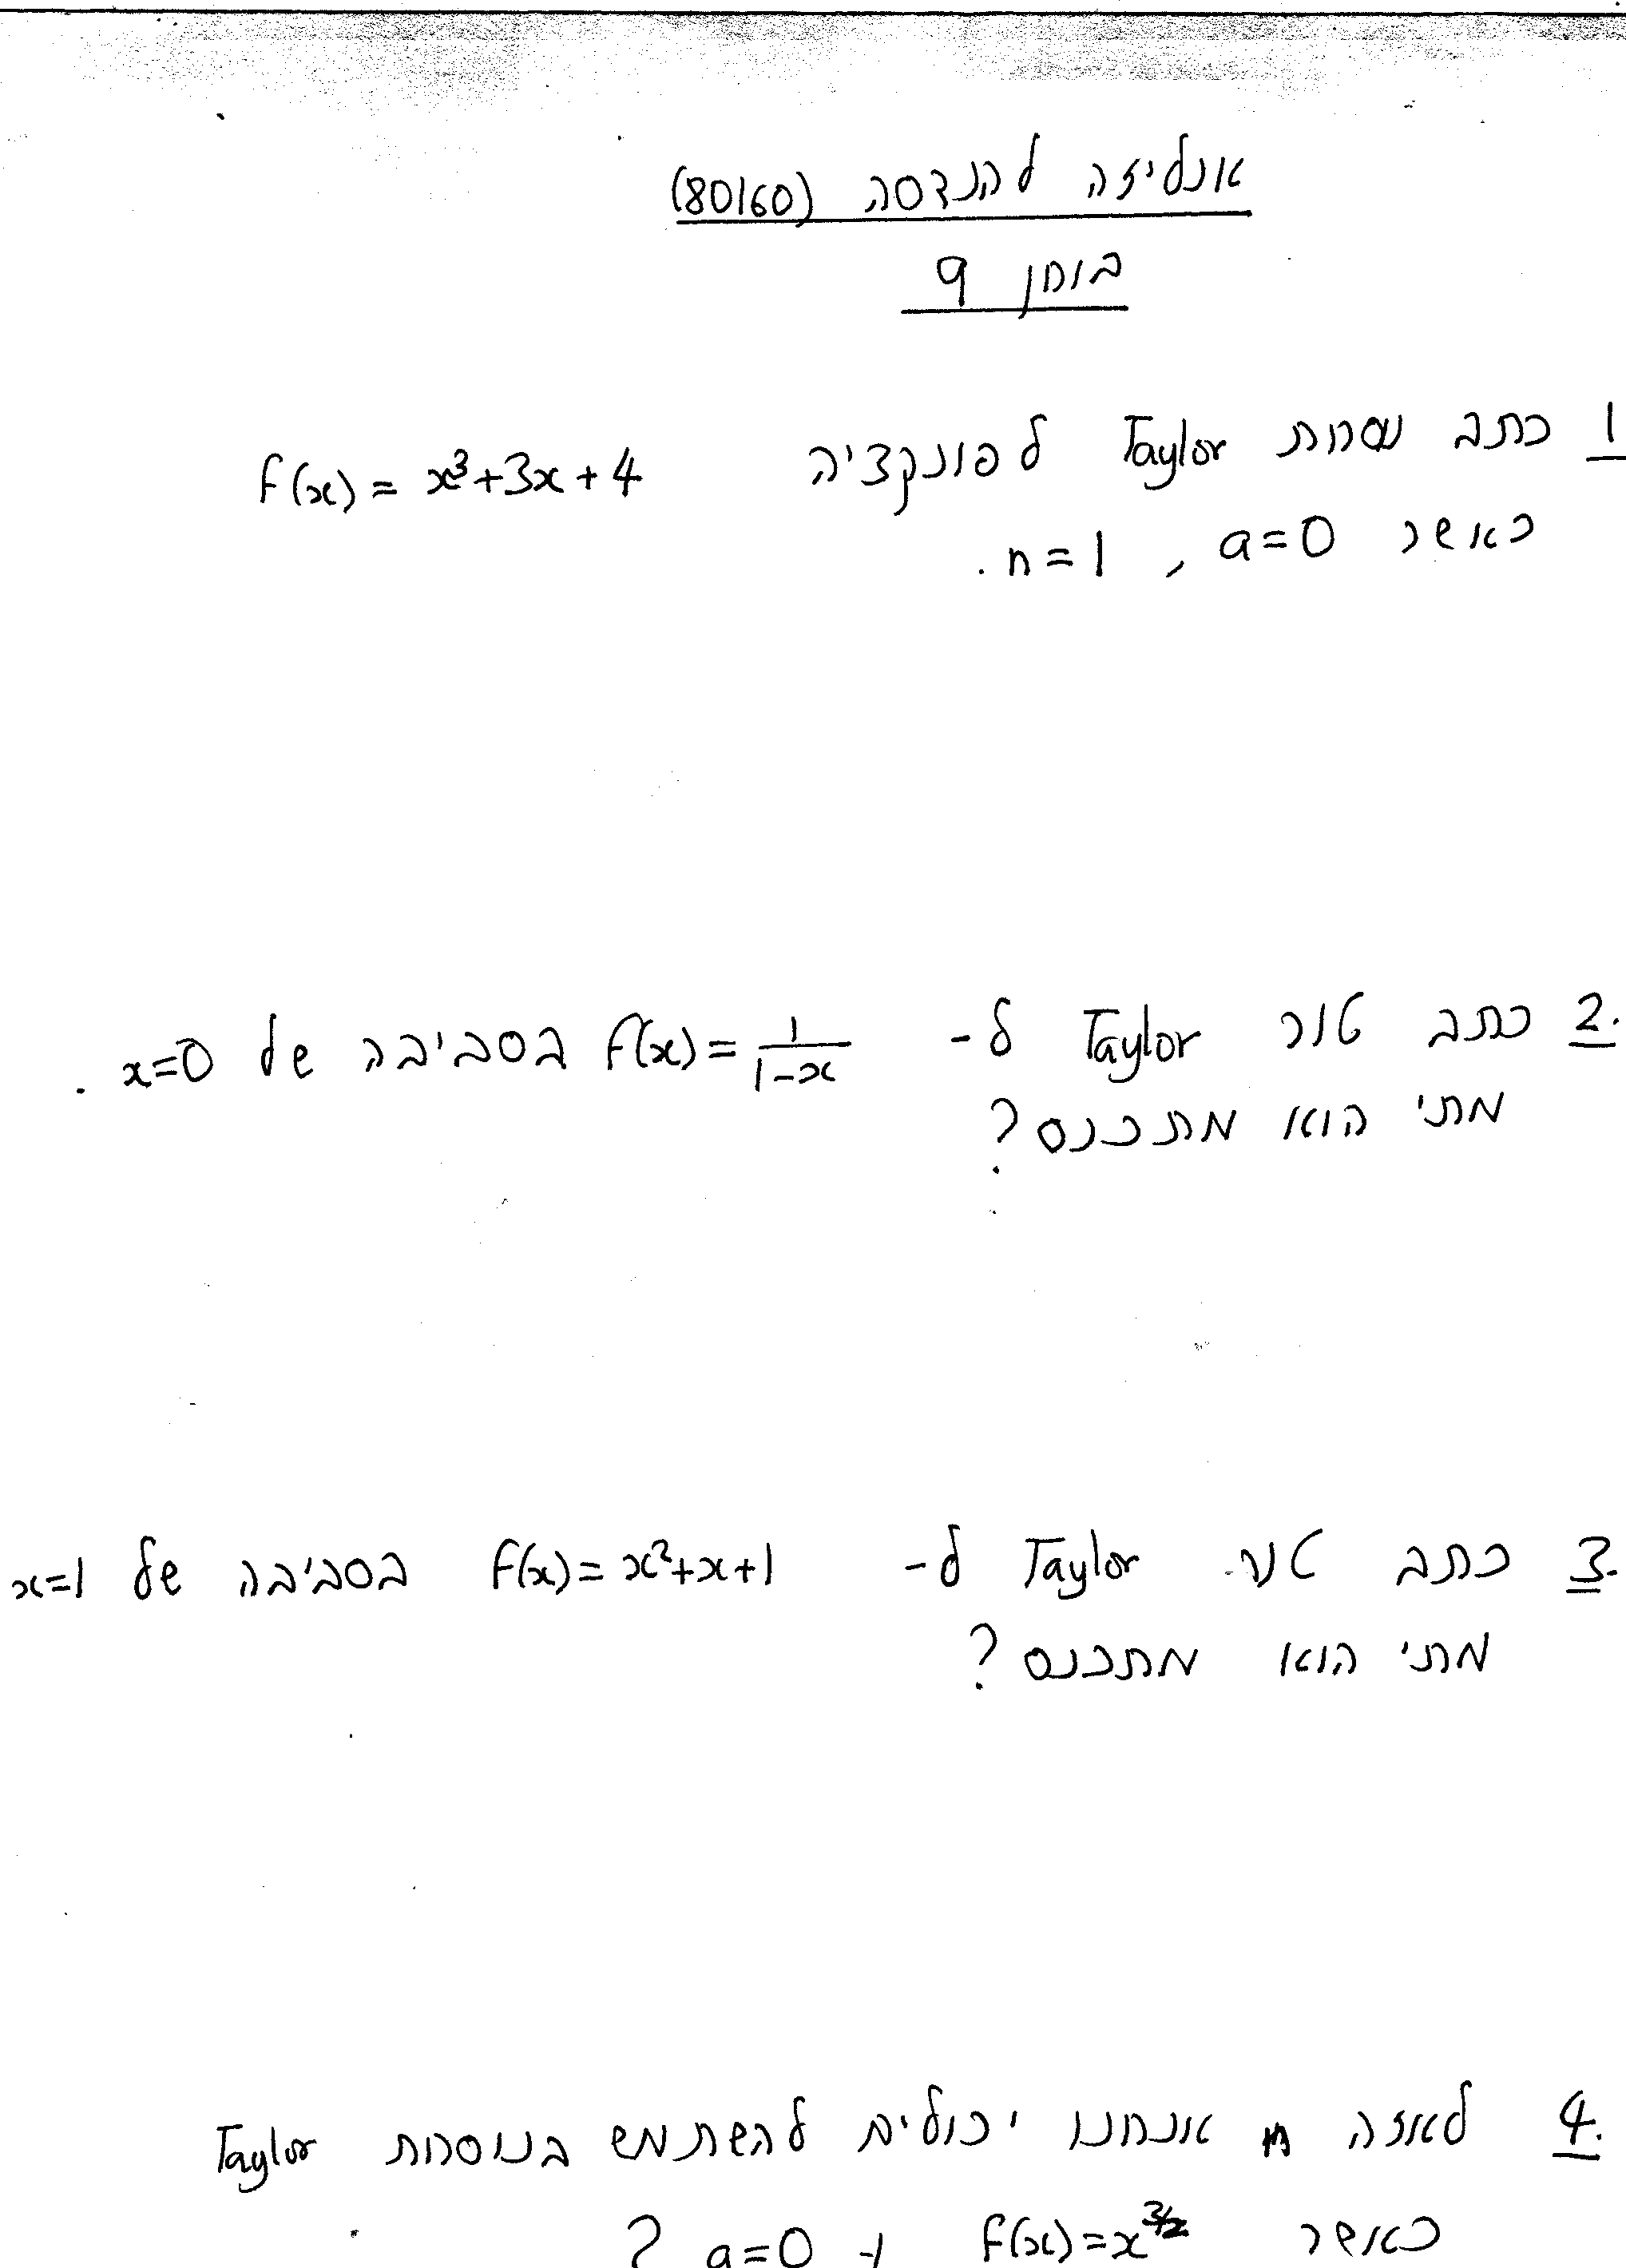 אנליזה להנדסה (80160)
בוחן 9
1 כתב נוסחת Taylor לפונקציה f(x) = x³+3x+4
כאשר a=0 , n=1 .
2. כתב טור Taylor ל- f(x) = 1/(1-x) בסביבה של x=0 .
מתי הוא מתכנס ?
3. כתב טור Taylor ל- f(x) = x²+x+1 בסביבה של x=1
מתי הוא מתכנס ?
4. לאיזה n אנחנו יכולים להשתמש בנוסחת Taylor
כאשר f(x) = x^3/2 ו- a=0 ?